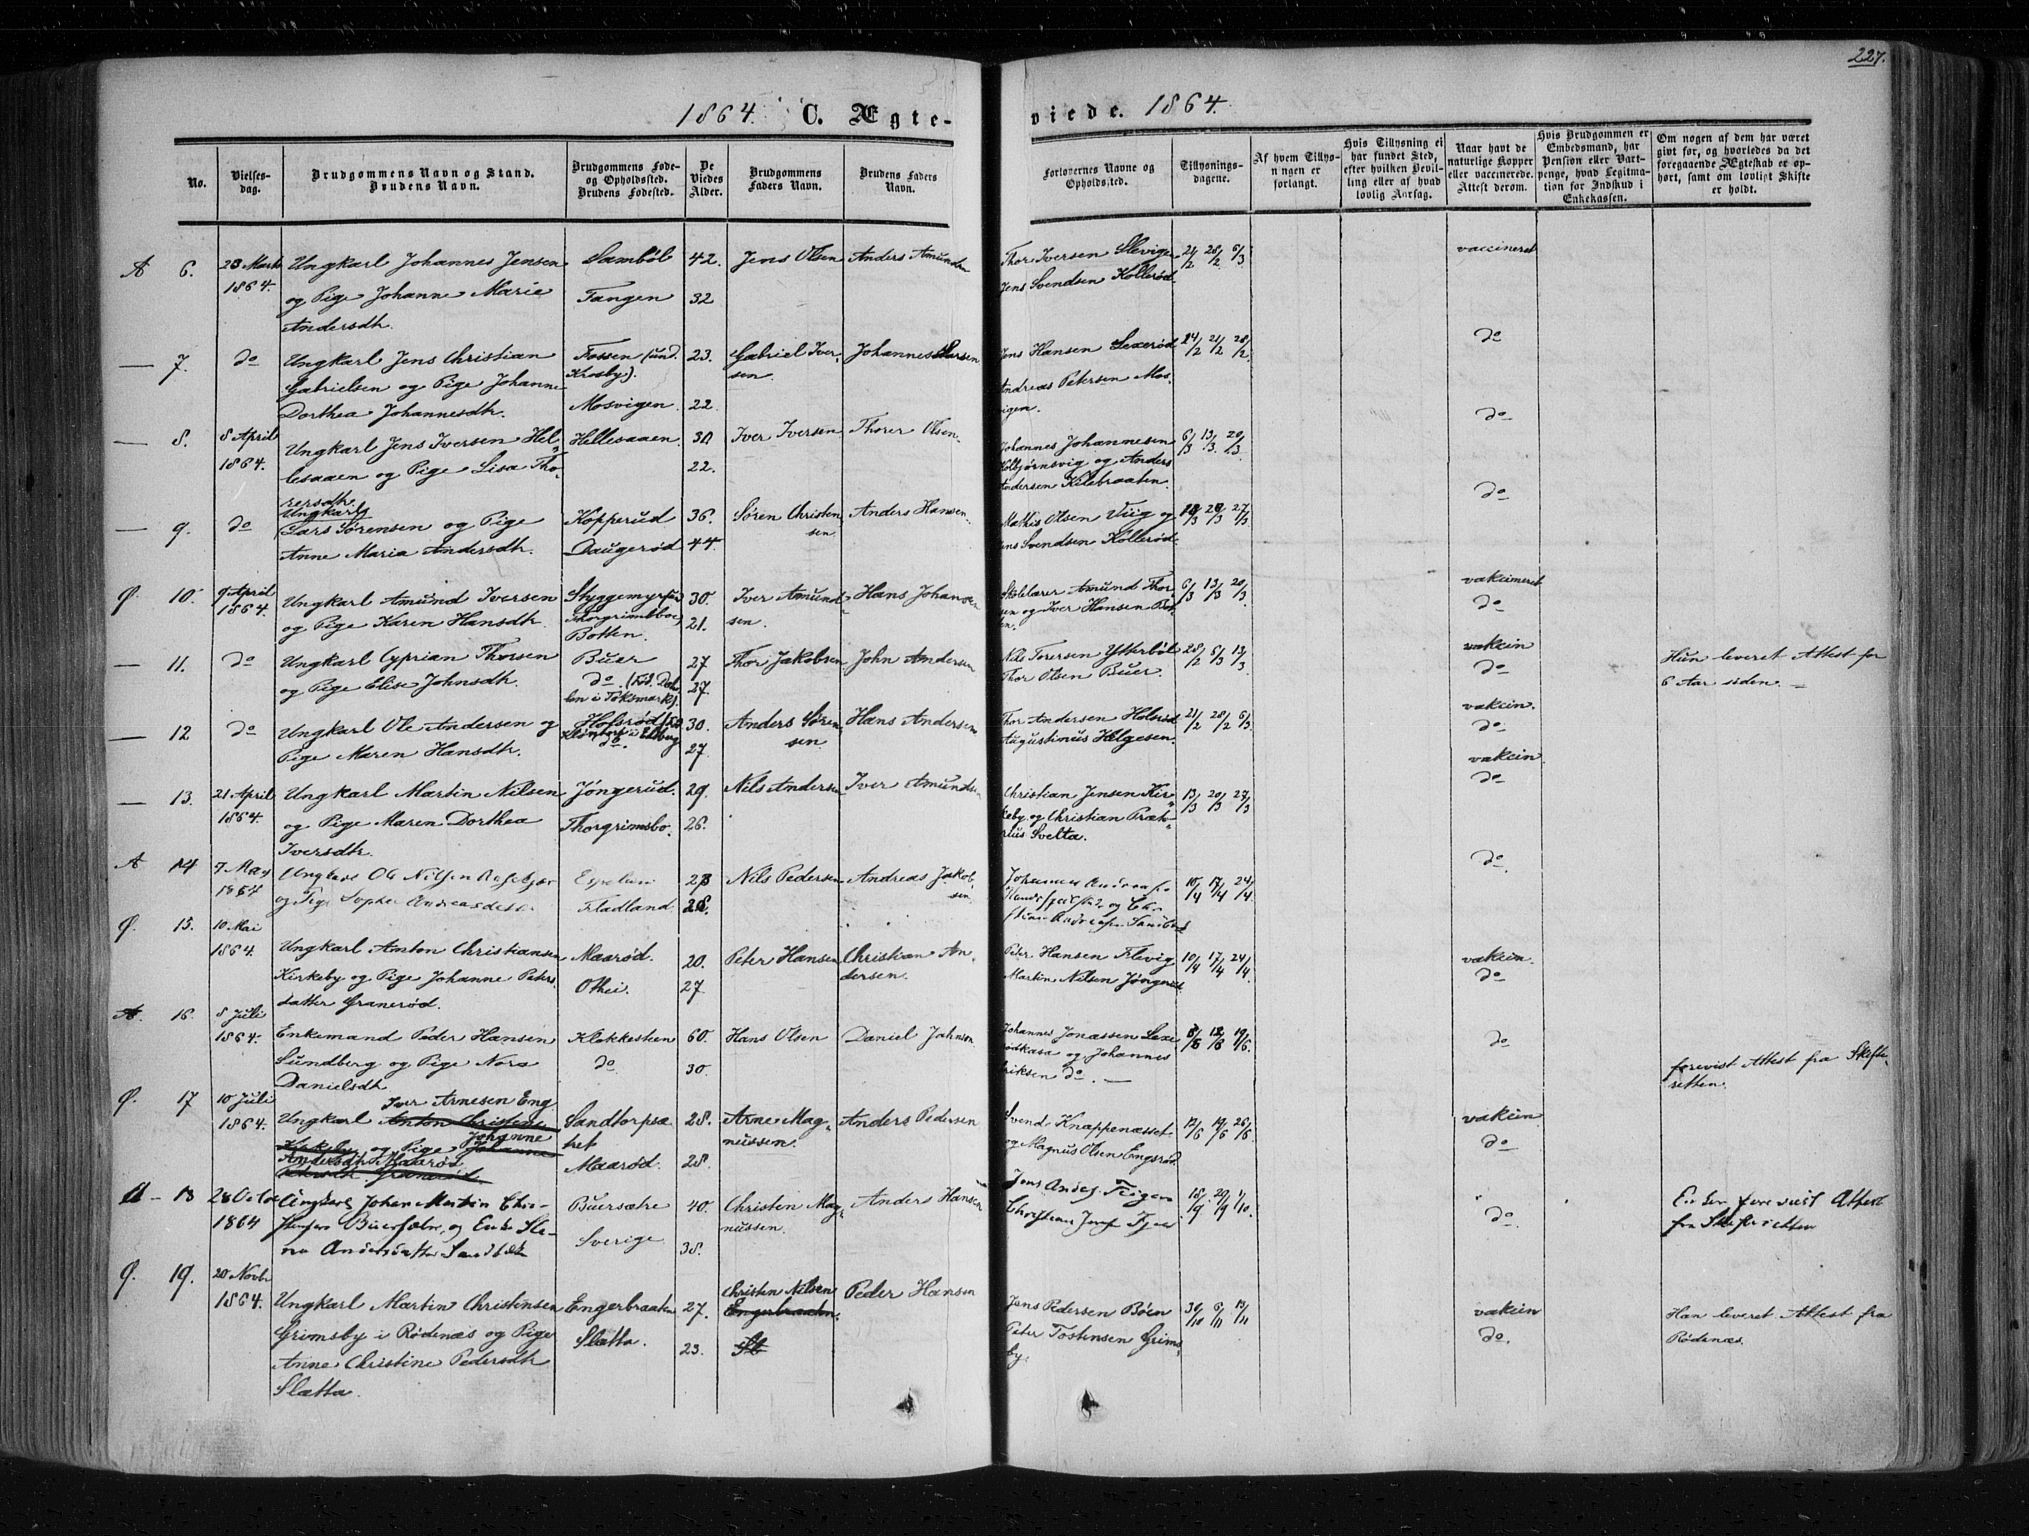 227.
1864. C. Ægte-
viede. 1864.
No.
Vielses-
dag.
Brudgommens Navn og Stand.
Brudens Navn.
Brudgommens Føde-
og Opholdssted.
Brudens Fødested.
De
Viedes
Alder.
Brudgommens
Faders Navn.
Brudens Faders
Navn.
Forlovernes Navne og
Opholdssted.
Tillysnings-
dagene.
Af hvem Tillys-
ningen er
forlangt.
Hvis Tillysning ei
har fundet Sted,
efter hvilken Bevil-
ling eller af hvad
lovlig Aarsag.
Naar havt de
naturlige Kopper
eller vaccinerede.
Attest derom.
Hvis Brudgommen er
Embedsmand, har
Pension eller Vart-
penge, hvad Legitma-
tion for Indskud i
Enkekassen.
Om nogen af dem har været
givt før, og hvorledes da det
foregaaende Ægteskab er op-
hørt, samt om lovligt Skifte
er holdt.
A 6. 28 Marts
1864.
Ungkarl Johannes Jensen
og Pige Johanne Marie
Andersdtr.
Sambøl
Tangen
42.
32
Jens Olsen
Anders Amundsen
Thor Iversen Slevigen
Jens Svendsen Kollerød.
21/2 28/2 6/3
vaccineret
do
— 7. do
Ungkarl Jens Christian
Gabrielsen og Pige Johanne
Dorthea Johannesdtr.
Fossen (und.
Krosby).
Mosvigen.
23.
22
Gabriel Iver-
sen.
Johannes Larsen
Jens Hansen Lexerød
Andreas Petersen Mos-
vigen.
14/2 21/2 28/2
do
— 8. 8 April
1864.
Ungkarl Jens Iversen Hel-
lesaaen og Pige Lisa Tho-
rersdtr
Hellesaaen.
30
22.
Iver Iversen
Thorer Olsen.
Johannes Johannesen
Kolbjørnsvig og Anders
Andersen Kilebraaten.
6/3 13/3 20/3
do
— 9. do
Ungkarl
Lars Sørensen og Pige
Anne Maria Andersdtr.
Kopperud
Daugerød
36.
44
Søren Christen
sen.
Anders Hansen.
Mathis Olsen Viig og
Jens Svendsen Kollerød.
27/3
Ø. 10. 9 April
1864.
Ungkarl Amund Iversen
og Pige Karen Hansdtr.
Styggemyr
Thorgrimsboe
Botten.
30.
21.
Iver Amund-
sen.
Hans Johansen
Skolelærer Amund Thor
sen og Iver Hansen Bot
ten.
6/3 13/3 20/3
vakcineret
do
— 11. do
Ungkarl Cyprian Thorsen
og Pige Elise Johnsdtr.
Buer
do
27
27.
Thor Jakobsen
John Andersen
Nils Torersen Ytterbøl
Thor Olsen Buer.
28/2 6/3 13/3
vakcin
do
Hun leveret Attest for
6 Aar siden. —
— 12 do
Ungkarl Ole Andersen og
Pige Maren Hansdtr.
Hofsrød
do.
30.
27.
Anders Søren
sen
Hans Andersen
Thor Andersen Holsrød
Augustinus Helgesen.
21/2 28/2 6/3
vakcin.
do
— 13. 21 April
1864.
Ungkarl Martin Nilsen
og Pige Maren Dorthea
Iversdtr.
Jøngerud.
Thorgrimsbo.
29.
26.
Nils Andersen
Iver Amundsen
Christian Jensen Kir-
keby og Christian Præk-
rius Svelta.
13/3 20/3 27/3
vakcin
do
A 14 7. May
1864
Ungkarl Ole Nilsen
og Pige Sophie Andreasdatter
Fladland.
28.
Nils Pedersen
Andreas Jakob-
sen.
10/4 17/4 24/4
do
Ø. 15. 10. Mai
1864.
Ungkarl Anton Christiansen
Kirkeby og Pige Johanne Peters
datter Granerød.
Maarød.
Othei.
20.
27
Peter Hansen
Christian An-
dersen.
Peter Hansen Flevig
Martin Nilsen Jøngerud
10/4 17/4 24/4
vakcin.
do
A. 16. 8 Juli
1864.
Enkemand Peder Hansen
Sundberg og Pige Nora
Danielsdtr
Klokkesteen
do
60.
30.
Hans Olsen
Daniel Jahnsen
Johannes Jonassen Lexe
rødkasa og Johannes
Eriksen do. —
19/6.
do
forevist Attest fra Skifte-
retten.
Ø. 17 10 Juli
1864.
Iver Arnesen Eng.
Ungkarl Anton Christens
Johanne
Kirkeby og Pige Johanne
Andersdtr Maarød
Petersdtr Granerød
Sandtorpsæ
tret
Maarød.
28.
28.
Arne Mag-
nussen.
Anders Pedersen
Svend Knappenæsset
og Magnus Olsen Engsrød
12/6 19/6 26/6
vakcin
do
A — 18 28 Octob
1864
Ungkarl Johan Martin Chri-
stensen Buersætre, og Enke Le-
na Andersdatter Sandbæk
Buersætre
Sverige
40.
38.
Christen Mag-
nussen.
Anders Hansen
Jens Anders. Tigen
Christian Jens
18/9
do.
Enken forevist Attest
fra Skifteretten
Ø. 19. 20 Novbr
1864.
Ungkarl Martin Christensen
Grimsby i Rødenæs og Pige
Anne Christine Pedersdtr
Slætta.
Engerbraaten
Slætta.
27.
23.
Christen Nilsen
Engerbraaten.
Peder Hansen
Jens Pedersen Bøen
Peter Tostensen Grims-
by.
30/10 6/11 13/11
vakcin
do.
Han leveret Attest fra
Rødenæs.